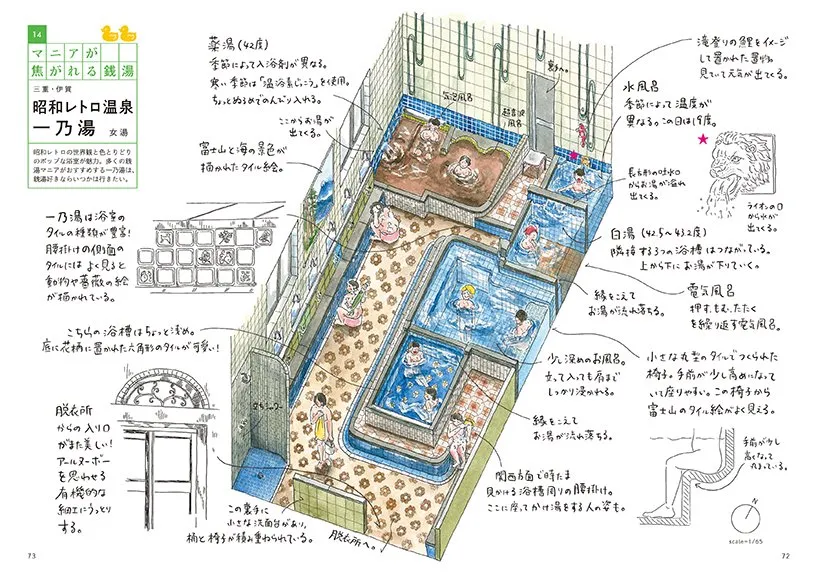 14
マニアが
焦がれる銭湯
三重・伊賀
昭和レトロ温泉
一乃湯 女湯
昭和レトロの世界観と色とりどり
のポップな浴室が魅力。多くの銭
湯マニアがおすすめする一乃湯は、
銭湯好きならいつかは行きたい。
薬湯(42度)
季節によって入浴剤が異なる。
寒い季節は「温浴素じっこう」を使用。
ちょっとぬるめでのんびり入れる。
ここからお湯が
出てくる。
富士山と海の景色が
描かれたタイル絵。
一乃湯は浴室の
タイルの種類が豊富!
腰掛けの側面の
タイルには よく見ると
動物や薔薇の絵
が描かれている。
こちらの浴槽はちょっと浅め。
底に花柄に置かれた六角形のタイルが可愛い!
脱衣所
からの入り口
がまた美しい!
アールヌーボー
を思わせる
有機的な
細工にうっとり
する。
気泡風呂
超音波
風呂
裏手へ。
立ちシャワー
この裏手に
小さな洗面台があり、
桶と椅子が積み重ねられている。
脱衣所へ。
滝登りの鯉をイメージ
して置かれた置物。
見ていて元気が出てくる。
水風呂
季節によって温度が
異なる。この日は19度。
長方形の吐水口
からお湯が溢れ
出てくる。
ライオンの口
から水が
出てくる。
白湯(42.5〜43.2度)
隣接する3つの浴槽はつながっている。
上から下にお湯が下りていく。
縁をこえて
お湯が流れ落ちる。
電気風呂
押す、もむ、たたく
を繰り返す電気風呂。
少し深めのお風呂。
立って入っても肩まで
しっかり浸かれる。
縁をこえて
お湯が流れ落ちる。
小さな丸型のタイルでつくられた
椅子。手前が少し高めになって
いて座りやすい。この椅子から
富士山のタイル絵がよく見える。
手前が少し
高くなって
丸まっている。
関西方面で時たま
見かける浴槽周りの腰掛け。
ここに座ってかけ湯をする人の姿も。
N
scale=1/65
73
72